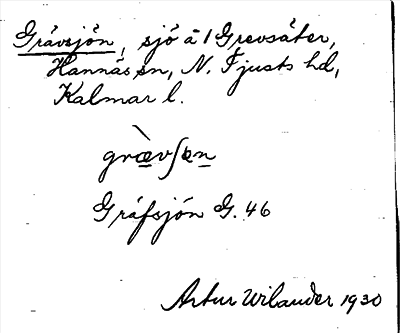 Grävsjön, sjö å 1 Grevsäter,
Hannäs sn, N. Tjusts hd,
Kalmar l.
grævʃɵn
Gräfsjön G. 46
Artur Wilander 1930